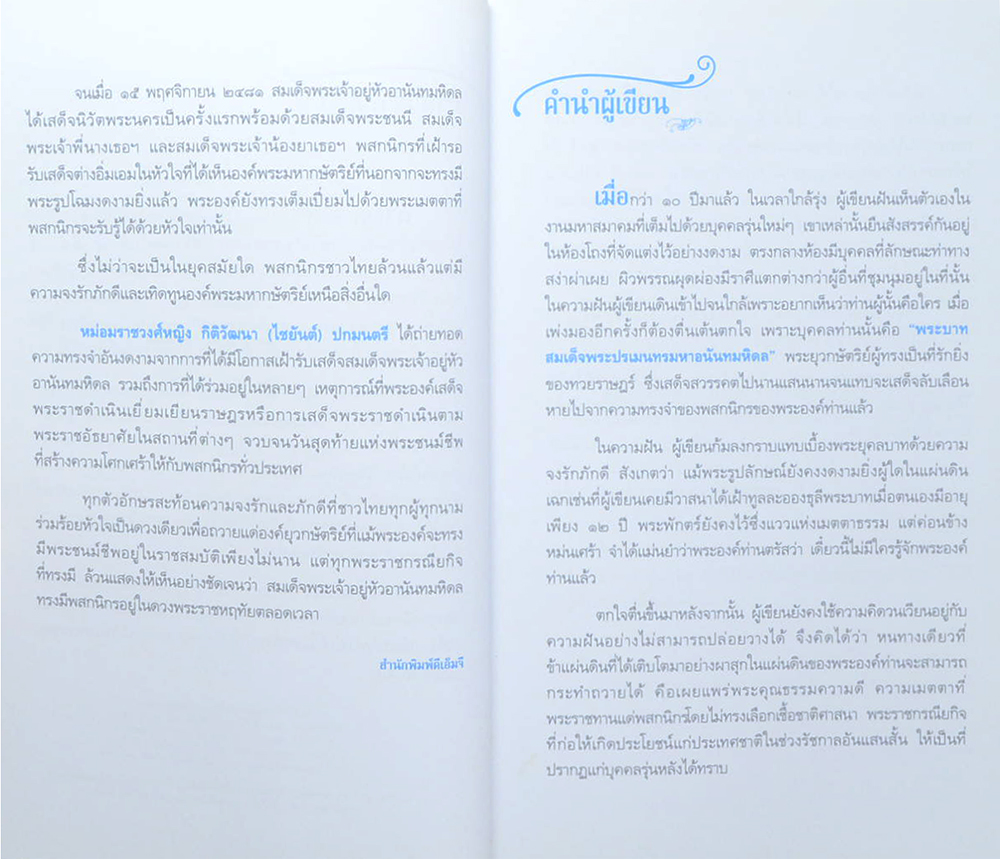 จนเมื่อ ๑๕ พฤศจิกายน ๒๔๘๑ สมเด็จพระเจ้าอยู่หัวอานันทมหิดล
ได้เสด็จนิวัตพระนครเป็นครั้งแรกพร้อมด้วยสมเด็จพระชนนี สมเด็จ
พระเจ้าพี่นางเธอฯ และสมเด็จพระเจ้าน้องยาเธอฯ พสกนิกรที่เฝ้ารอ
รับเสด็จต่างอิ่มเอมในหัวใจที่ได้เห็นองค์พระมหากษัตริย์ที่นอกจากจะทรงมี
พระรูปโฉมงดงามยิ่งแล้ว พระองค์ยังทรงเต็มเปี่ยมไปด้วยพระเมตตาที่
พสกนิกรจะรับรู้ได้ด้วยหัวใจเท่านั้น
ซึ่งไม่ว่าจะเป็นในยุคสมัยใด พสกนิกรชาวไทยล้วนแล้วแต่มี
ความจงรักภักดีและเทิดทูนองค์พระมหากษัตริย์เหนือสิ่งอื่นใด
หม่อมราชวงศ์หญิง กิติวัฒนา (ไชยันต์) ปกมนตรี ได้ถ่ายทอด
ความทรงจำอันงดงามจากการที่ได้มีโอกาสเฝ้ารับเสด็จสมเด็จพระเจ้าอยู่หัว
อานันทมหิดล รวมถึงการที่ได้ร่วมอยู่ในหลายๆ เหตุการณ์ที่พระองค์เสด็จ
พระราชดำเนินเยี่ยมเยียนราษฎรหรือการเสด็จพระราชดำเนินตาม
พระราชอัธยาศัยในสถานที่ต่างๆ จวบจนวันสุดท้ายแห่งพระชนม์ชีพ
ที่สร้างความโศกเศร้าให้กับพสกนิกรทั่วประเทศ
ทุกตัวอักษรสะท้อนความจงรักและภักดีที่ชาวไทยทุกผู้ทุกนาม
ร่วมร้อยหัวใจเป็นดวงเดียวเพื่อถวายแด่องค์ยุวกษัตริย์ที่แม้พระองค์จะทรง
มีพระชนม์ชีพอยู่ในราชสมบัติเพียงไม่นาน แต่ทุกพระราชกรณียกิจ
ที่ทรงมี ล้วนแสดงให้เห็นอย่างชัดเจนว่า สมเด็จพระเจ้าอยู่หัวอานันทมหิดล
ทรงมีพสกนิกรอยู่ในดวงพระราชหฤทัยตลอดเวลา
สำนักพิมพ์ดีเอ็มจี
คำนำผู้เขียน
เมื่อกว่า ๑๐ ปีมาแล้ว ในเวลาใกล้รุ่ง ผู้เขียนฝันเห็นตัวเองใน
งานมหาสมาคมที่เต็มไปด้วยบุคคลรุ่นใหม่ๆ เขาเหล่านั้นยืนสังสรรค์กันอยู่
ในห้องโถงที่จัดแต่งไว้อย่างงดงาม ตรงกลางห้องมีบุคคลที่ลักษณะท่าทาง
สง่าผ่าเผย ผิวพรรณผุดผ่องมีราศีแตกต่างกว่าผู้อื่นที่ชุมนุมอยู่ในที่นั้น
ในความฝันผู้เขียนเดินเข้าไปจนใกล้เพราะอยากเห็นว่าท่านผู้นั้นคือใคร เมื่อ
เพ่งมองอีกครั้งก็ต้องตื่นเต้นตกใจ เพราะบุคคลท่านนั้นคือ “พระบาท
สมเด็จพระปรเมนทรมหาอนันทมหิดล” พระยุวกษัตริย์ผู้ทรงเป็นที่รักยิ่ง
ของทวยราษฎร์ ซึ่งเสด็จสวรรคตไปนานแสนนานจนแทบจะเสด็จลับเลือน
หายไปจากความทรงจำของพสกนิกรของพระองค์ท่านแล้ว
ในความฝัน ผู้เขียนก้มลงกราบแทบเบื้องพระยุคลบาทด้วยความ
จงรักภักดี สังเกตว่า แม้พระรูปลักษณ์ยังคงงดงามยิ่งผู้ใดในแผ่นดิน
เฉกเช่นที่ผู้เขียนเคยมีวาสนาได้เฝ้าทูลละอองธุลีพระบาทเมื่อตนเองมีอายุ
เพียง ๑๒ ปี พระพักตร์ยังคงไว้ซึ่งแววแห่งเมตตาธรรม แต่ค่อนข้าง
หม่นเศร้า จำได้แม่นยำว่าพระองค์ท่านตรัสว่า เดี๋ยวนี้ไม่มีใครรู้จักพระองค์
ท่านแล้ว
ตกใจตื่นขึ้นมาหลังจากนั้น ผู้เขียนยังคงใช้ความคิดวนเวียนอยู่กับ
ความฝันอย่างไม่สามารถปล่อยวางได้ จึงคิดได้ว่า หนทางเดียวที่
ข้าแผ่นดินที่ได้เติบโตมาอย่างผาสุกในแผ่นดินของพระองค์ท่านจะสามารถ
กระทำถวายได้ คือเผยแพร่พระคุณธรรมความดี ความเมตตาที่
พระราชทานแด่พสกนิกรโดยไม่ทรงเลือกเชื้อชาติศาสนา พระราชกรณียกิจ
ที่ก่อให้เกิดประโยชน์แก่ประเทศชาติในช่วงรัชกาลอันแสนสั้น ให้เป็นที่
ปรากฏแก่บุคคลรุ่นหลังได้ทราบ